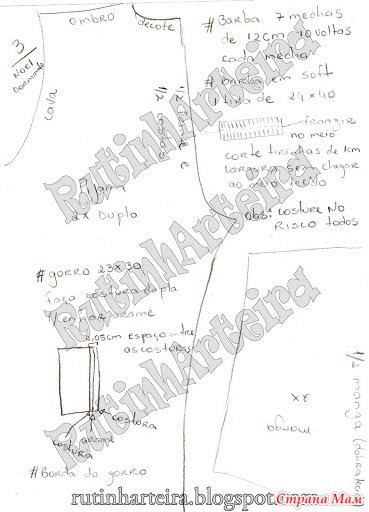 3
Noel
Dorminte
ombro
decote
cava
1/2 frente e
1/2 costas
2x Duplo
# Barba 7 mechas
de 12cm 10 voltas
cada mecha
# Barba em soft
1 tira de 24x40
franzir
no meio
corte tirinhas de 1cm
largura sem chegar
ao meio
Obs: costure NO
RISCO todos
# gorro 23x30
faça costura dupla
p/ enfiar arame
0,05cm espaço entre
as costuras
costura
arame
costura
# Borda do gorro
2x
manga
1/2 manga (dobra
RutinhArteira
RutinhArteira
RutinhArteira
RutinhArteira
rutinharteira.blogspot.com
Страна Мам